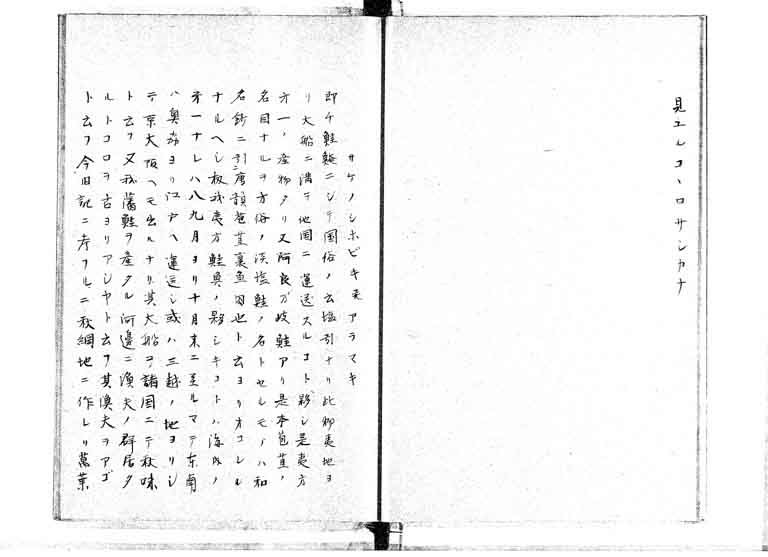 見エルコヽロサシカナ
サケノシホビキ并アラマキ
即チ鮭鯡ニシテ国俗ノ云塩引ナリ此物夷地ヨ
リ大船ニ満テ他国ニ運送スルコト夥シ是夷方
才一ノ産物タリ又阿良万岐鮭アリ是本苞苴ノ
名目ナルヲ方俗ノ淡塩鮭ノ名トセシモノハ和
名鈔ニ引唐韻苞苴裹魚肉也ト云ヨリオコレル
ナルヘシ扨我夷方鮭魚ノ夥シキコトハ海内ノ
才一ナレハ八九月ヨリ十月末ニ至ルマテ东南
ハ奥州ヨリ江戸ヘ運送シ或ハ三越ノ地ヨリシ
テ京大阪ヘモ出ルナリ其大船ヲ諸国ニテ秋味
ト云フ又我藩鮭ヲ産タル河邊ニ漁夫ノ群居タ
ルトコロヲ古ヨリアシヤト云フ其漁夫ヲアゴ
ト云フ今旧記ニ考フルニ秋網地ニ作レリ萬葉